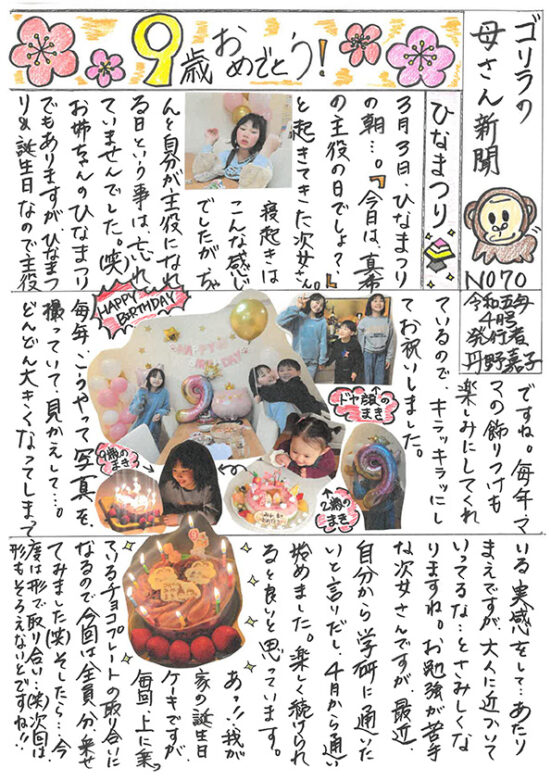 ゴリラの
母さん新聞
NO70
令和五年
4月号
発行者
丹野嘉子
9歳おめでとう!
ひなまつり
3月3日、ひなまつり
の朝…。『今日は、真希
の主役の日でしょ?』
と起きてきた次女さん。
寝起きは
こんな感じ
でしたが、ちゃ
んと自分が主役になれ
る日という事は、忘れ
ていませんでした。(笑)
お姉ちゃんのひなまつり
でもありますが、ひなまつ
り&誕生日なので主役
ですね。毎年、マ
マの飾りつけも
楽しみにしてくれ
ているので、キラッキラッにし
てお祝いしました。
HAPPY BIRTHDAY
ドヤ顔の
まき
9歳のまき
2歳の
まき
毎年、こうやって写真を、
撮っていて見かえして…。
どんどん大きくなってしまって
いる実感をして…あたり
まえですが、大人に近づいて
いってるな…とさみしくな
りますね。お勉強が苦手
な次女さんですが、最近
自分から学研に通いた
いと言いだし、4月から通い
始めました。楽しく続けられ
ると良いと思っています。
あっ!!我が
家の誕生日
ケーキですが、
毎回、上に乗っ
ているチョコプレートの取り合いに
なるので今回は全員分、乗せ
てみました(笑)そしたら…今
度は形で取り合い…(笑)次回は
形もそろえないとですね!!